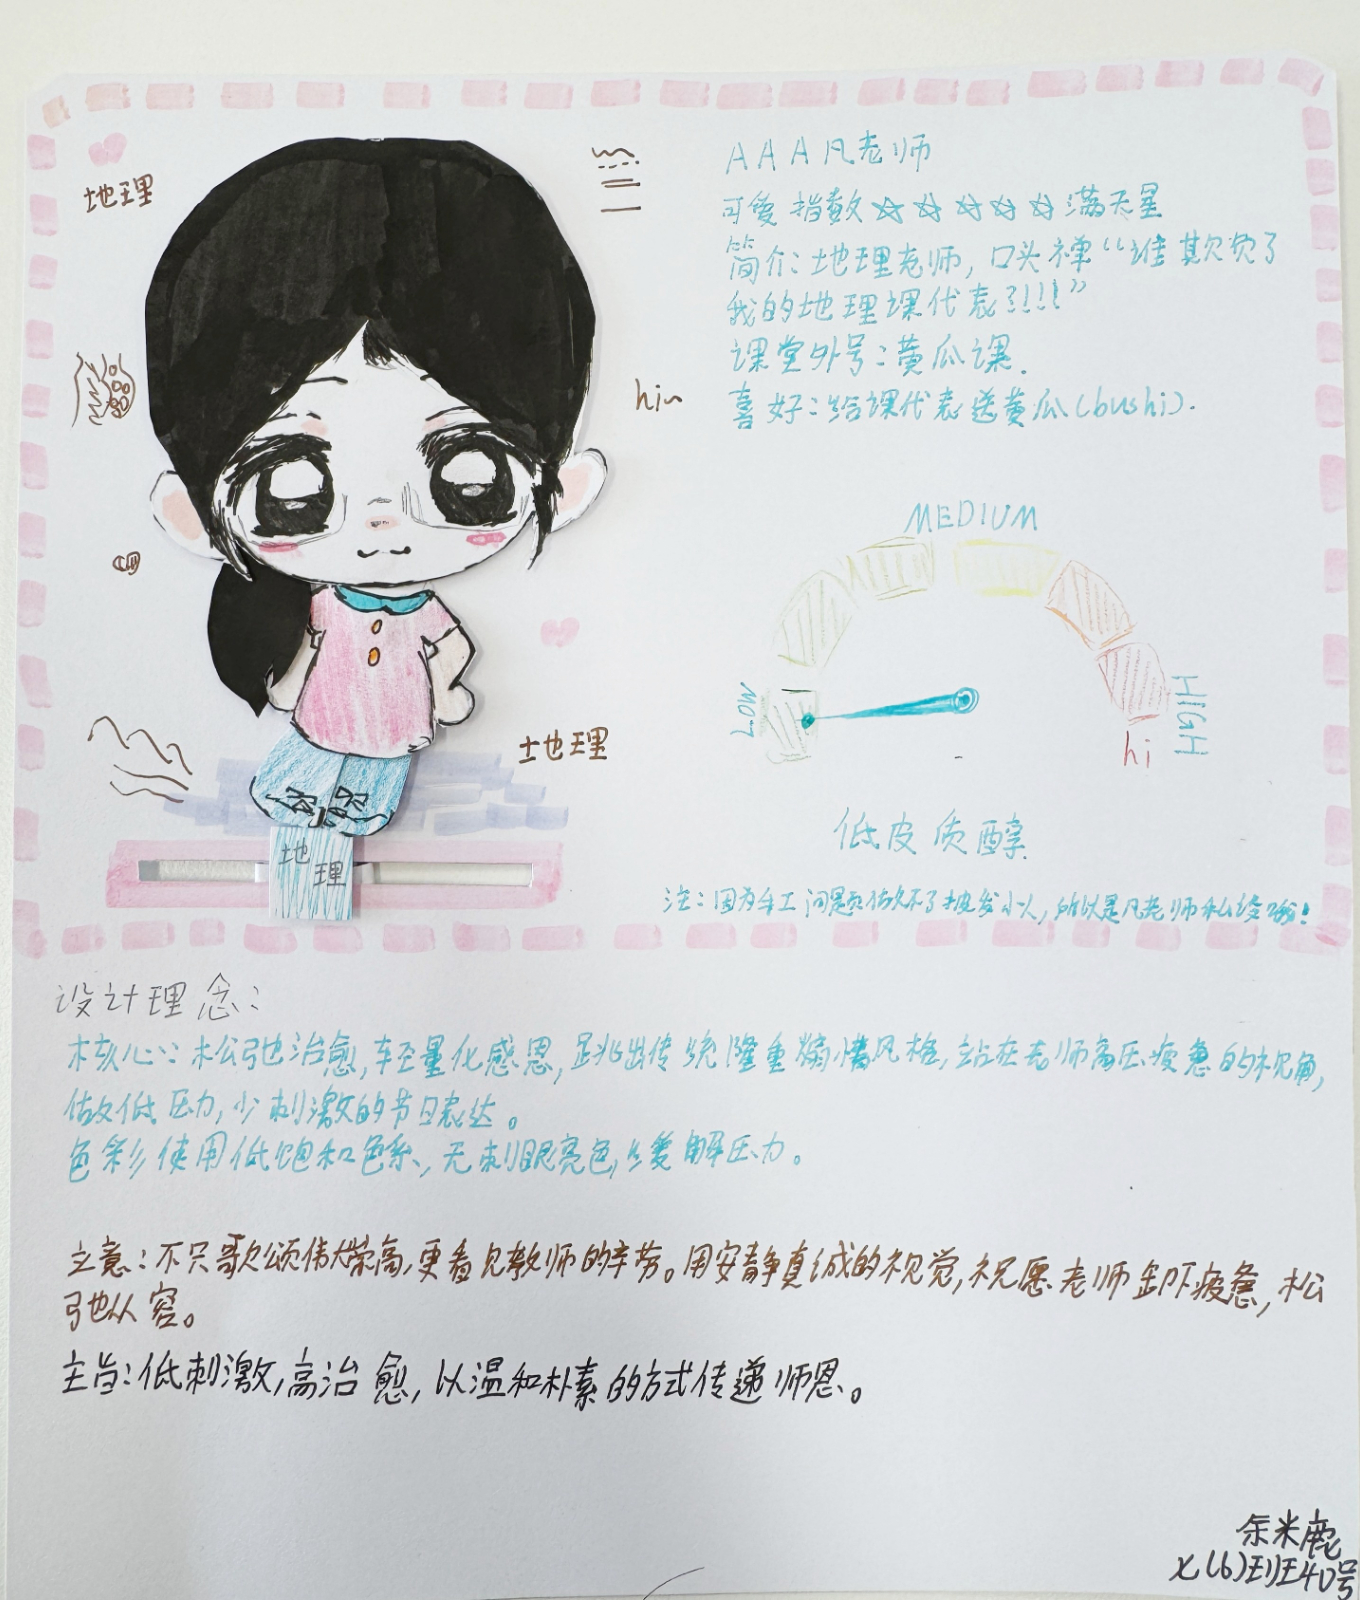 地理
AAA凡老师
可爱指数☆☆☆☆☆满天星
简介：地理老师，口头禅“谁欺负了
我的地理课代表？！！！”
课堂外号：黄瓜课.
喜好：给课代表送黄瓜(bushi).
MEDIUM
LOW
HIGH
hi
地理
地理
低皮质醇
注：因为手工问题做不了披发小人，所以是凡老师私设哦！
设计理念：
核心：松弛治愈，轻量化感恩，跳出传统隆重煽情风格，站在老师高压疲惫的视角，
做低压力，少刺激的节日表达。
色彩使用低饱和色系，无刺眼亮色，缓解压力。
立意：不只歌颂伟大崇高，更看见教师的辛劳。用安静真诚的视觉，祝愿老师卸下疲惫，松
弛从容。
主旨：低刺激，高治愈，以温和朴素的方式传递师恩。
余米鹿
七(6)班40号